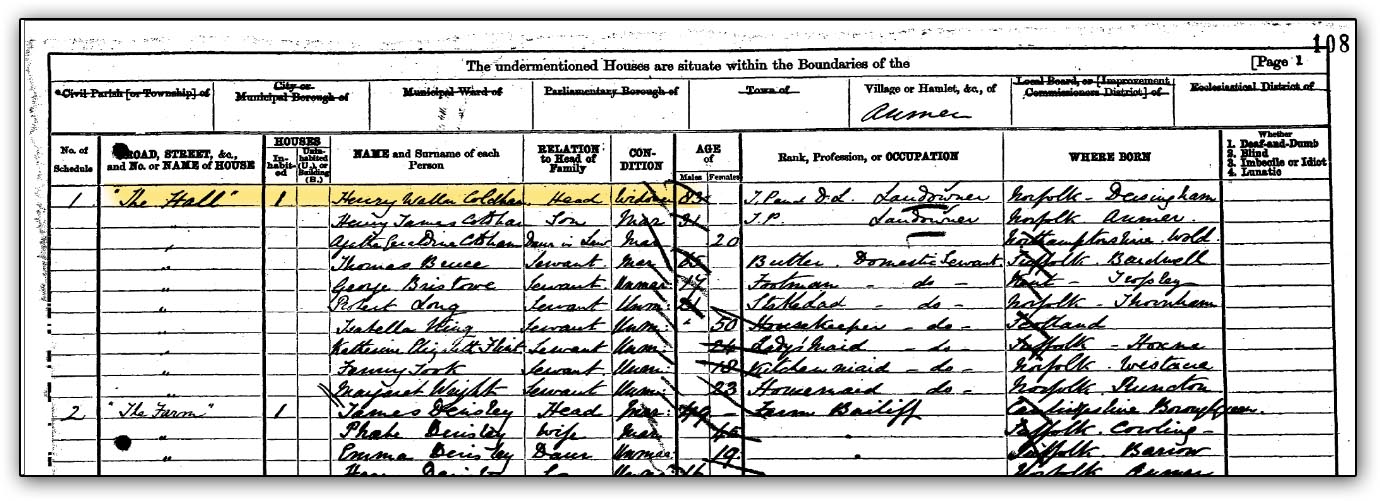 108
The undermentioned Houses are situate within the Boundaries of the [Page 1
Civil Parish [or Township] of City or Municipal Borough of Municipal Ward of Parliamentary Borough of Town of Village or Hamlet, &c., of Local Board, or [Improvement Commissioners District] of Ecclesiastical District of
Anmer
No. of Schedule ROAD, STREET, &c., and No. or NAME of HOUSE HOUSES Inhabited Uninhabited (U.), or Building (B.) NAME and Surname of each Person RELATION to Head of Family CONDITION AGE of Males Females Rank, Profession, or OCCUPATION WHERE BORN Whether 1. Deaf-and-Dumb 2. Blind 3. Imbecile or Idiot 4. Lunatic
1 "The Hall" 1 Henry Walton Coldham Head Widower 83 J.P. and D.L. Landowner Norfolk - Dersingham
" Henry James Coldham Son Mar 31 J.P. Landowner Norfolk Anmer
" Geraldine Coldham Daur in Law Mar 20 Northamptonshire Wold
" Thomas Bruce Servant Mar Butler Domestic Servant Suffolk Bardwell
" George Bristowe Servant Unmar 17 Footman - do - Kent -
" Robert Long Servant Unm: 21 - do - Norfolk - Thornham
" Isabella King Servant Unm: 50 Housekeeper - do - Scotland
" Katherine Elizabeth Flint Servant Unm: 24 Lady's Maid - do - Suffolk - Hoxne
" Fanny Took Servant Unm: 18 Kitchenmaid - do - Norfolk
" Margaret Wright Servant Unm: 23 Housemaid - do - Norfolk
2 "The Farm" 1 James Densley Head Mar: 49 - Farm Bailiff Cambridgeshire
" Phœbe Densley Wife Mar 45 Suffolk Cowling
" Emma Densley Daur Unmar 19 Suffolk Barrow
Norfolk Anmer